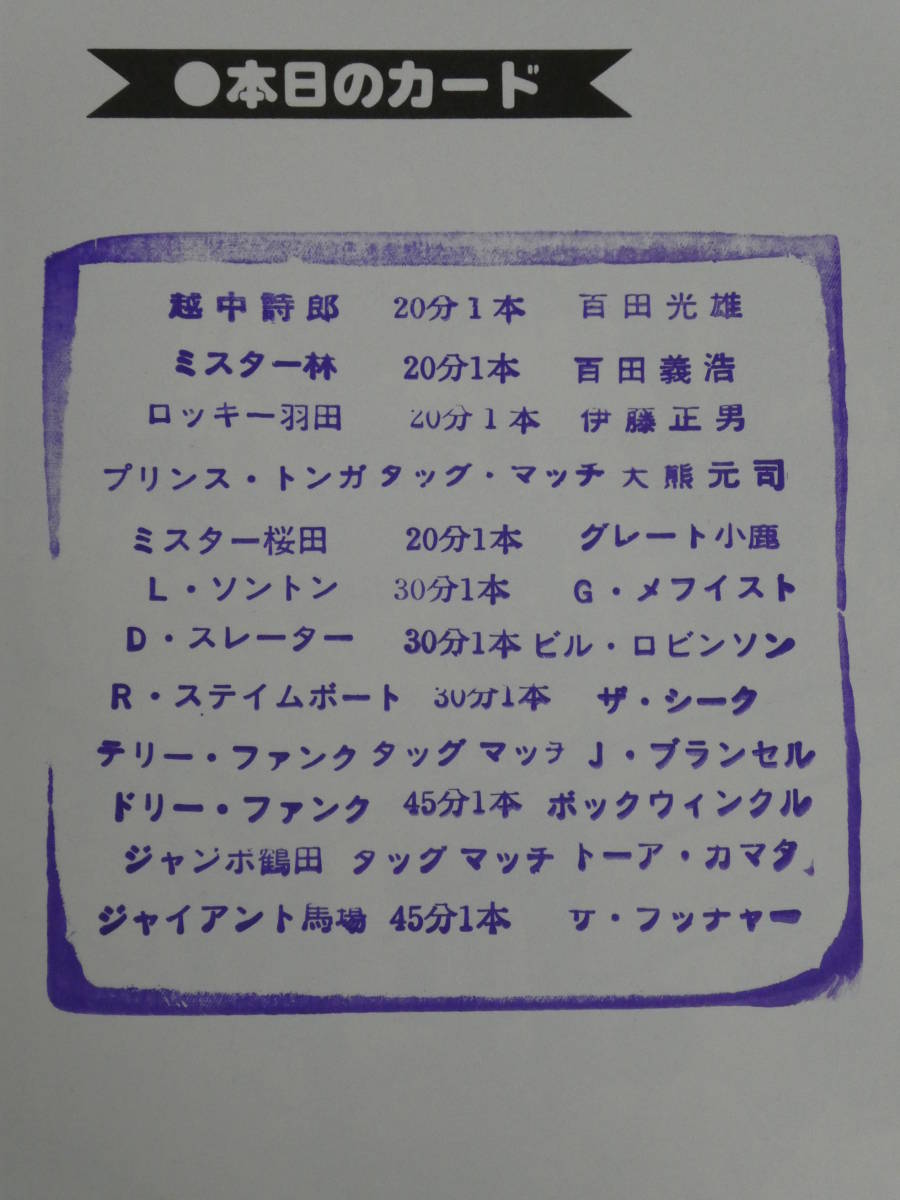 ●本日のカード
越中詩郎 20分1本 百田光雄
ミスター林 20分1本 百田義浩
ロッキー羽田 20分1本 伊藤正男
プリンス・トンガ タッグ・マッチ 大熊元司
ミスター桜田 20分1本 グレート小鹿
L・ソントン 30分1本 G・メフイスト
D・スレーター 30分1本 ビル・ロビンソン
R・ステイムボート 30分1本 ザ・シーク
テリー・ファンク タッグ マッチ J・ブランゼル
ドリー・ファンク 45分1本 ボックウィンクル
ジャンボ鶴田 タッグ マッチ トーア・カマタ
ジャイアント馬場 45分1本 ザ・ブッチャー